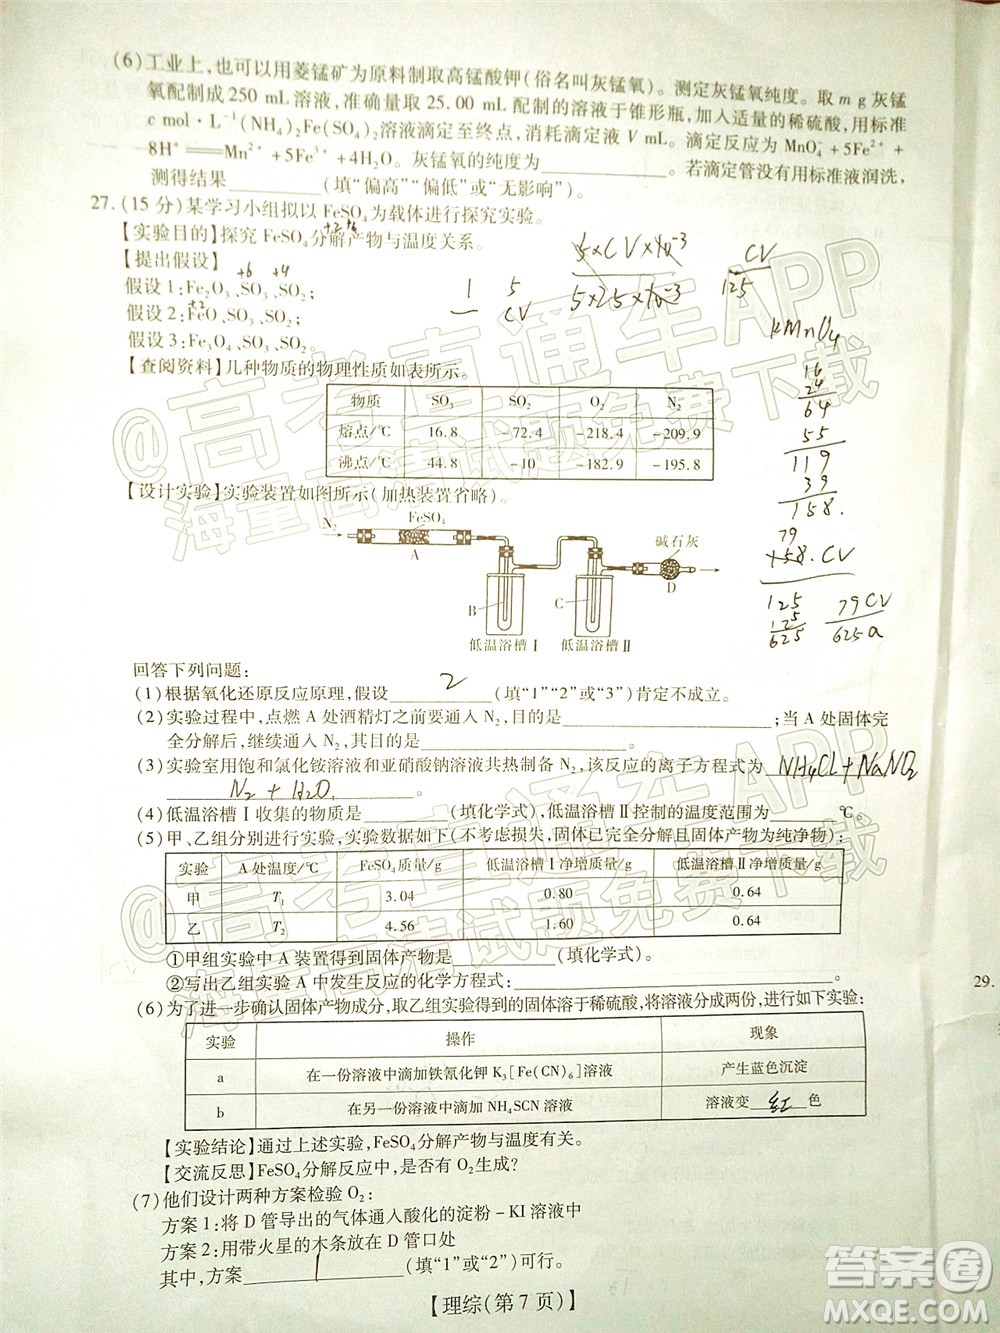 (6)工业上,也可以用菱锰矿为原料制取高锰酸钾(俗名叫灰锰氧)。测定灰锰氧纯度。取 m g 灰锰
氧配制成 250 mL 溶液,准确量取 25.00 mL 配制的溶液于锥形瓶,加入适量的稀硫酸,用标准
c mol·L⁻¹(NH₄)₂Fe(SO₄)₂溶液滴定至终点,消耗滴定液 V mL。滴定反应为 MnO₄⁻+5Fe²⁺+
8H⁺═══Mn²⁺+5Fe³⁺+4H₂O。灰锰氧的纯度为________。若滴定管没有用标准液润洗,
测得结果________(填“偏高”“偏低”或“无影响”)。
27.(15 分)某学习小组拟以 FeSO₄为载体进行探究实验。
【实验目的】探究 FeSO₄分解产物与温度关系。
+2 +6
5×CV×10⁻³
5×25×10⁻³
CV
125
【提出假设】
+6 +4
假设 1:Fe₂O₃、SO₃、SO₂;
1 5
+2
假设 2:FeO、SO₃、SO₂;
— CV
KMnO₄
假设 3:Fe₃O₄、SO₃、SO₂。
【查阅资料】几种物质的物理性质如表所示。
物质 SO₃ SO₂ O₂ N₂
熔点/℃ 16.8 −72.4 −218.4 −209.9
沸点/℃ 44.8 −10 −182.9 −195.8
16
24
64
55
119
39
158.
79
158. CV
125
125
625
79CV
625a
【设计实验】实验装置如图所示(加热装置省略)。
N₂
FeSO₄
A
B
低温浴槽Ⅰ
C
低温浴槽Ⅱ
碱石灰
D
回答下列问题:
(1)根据氧化还原反应原理,假设 2 (填“1”“2”或“3”)肯定不成立。
(2)实验过程中,点燃 A 处酒精灯之前要通入 N₂,目的是________;当 A 处固体完
全分解后,继续通入 N₂,其目的是________。
(3)实验室用饱和氯化铵溶液和亚硝酸钠溶液共热制备 N₂,该反应的离子方程式为 NH₄CL+NaNO₂
N₂ + H₂O
(4)低温浴槽Ⅰ收集的物质是________(填化学式),低温浴槽Ⅱ控制的温度范围为________℃。
(5)甲、乙组分别进行实验,实验数据如下(不考虑损失,固体已完全分解且固体产物为纯净物):
实验 A 处温度/℃ FeSO₄质量/g 低温浴槽Ⅰ净增质量/g 低温浴槽Ⅱ净增质量/g
甲 T₁ 3.04 0.80 0.64
乙 T₂ 4.56 1.60 0.64
①甲组实验中 A 装置得到固体产物是________(填化学式)。
②写出乙组实验 A 中发生反应的化学方程式:________。
(6)为了进一步确认固体产物成分,取乙组实验得到的固体溶于稀硫酸,将溶液分成两份,进行如下实验:
实验 操作 现象
a 在一份溶液中滴加铁氰化钾 K₃[Fe(CN)₆]溶液 产生蓝色沉淀
b 在另一份溶液中滴加 NH₄SCN 溶液 溶液变 红 色
【实验结论】通过上述实验,FeSO₄分解产物与温度有关。
【交流反思】FeSO₄分解反应中,是否有 O₂生成?
(7)他们设计两种方案检验 O₂:
方案 1:将 D 管导出的气体通入酸化的淀粉−KI 溶液中
方案 2:用带火星的木条放在 D 管口处
其中,方案 1 (填“1”或“2”)可行。
【理综(第 7 页)】
29.
@高考直通车APP
海量高清试题免费下载
@高考直通车APP
海量高清试题免费下载
答案圈
MXQE.COM